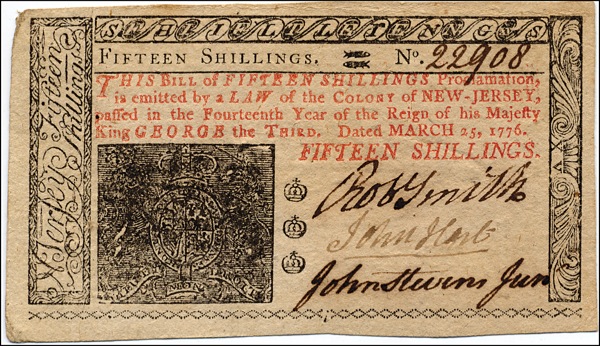 FIFTEEN SHILLINGS. No. 22908
THIS Bill of FIFTEEN SHILLINGS Proclamation,
is emitted by a LAW of the COLONY of NEW-JERSEY,
passed in the Fourteenth Year of the Reign of his Majesty
King GEORGE the THIRD. Dated MARCH 25, 1776.
FIFTEEN SHILLINGS.
Robt Smith
John Hart
John Stevens Jun
N. Jersey Fifteen
Shillings